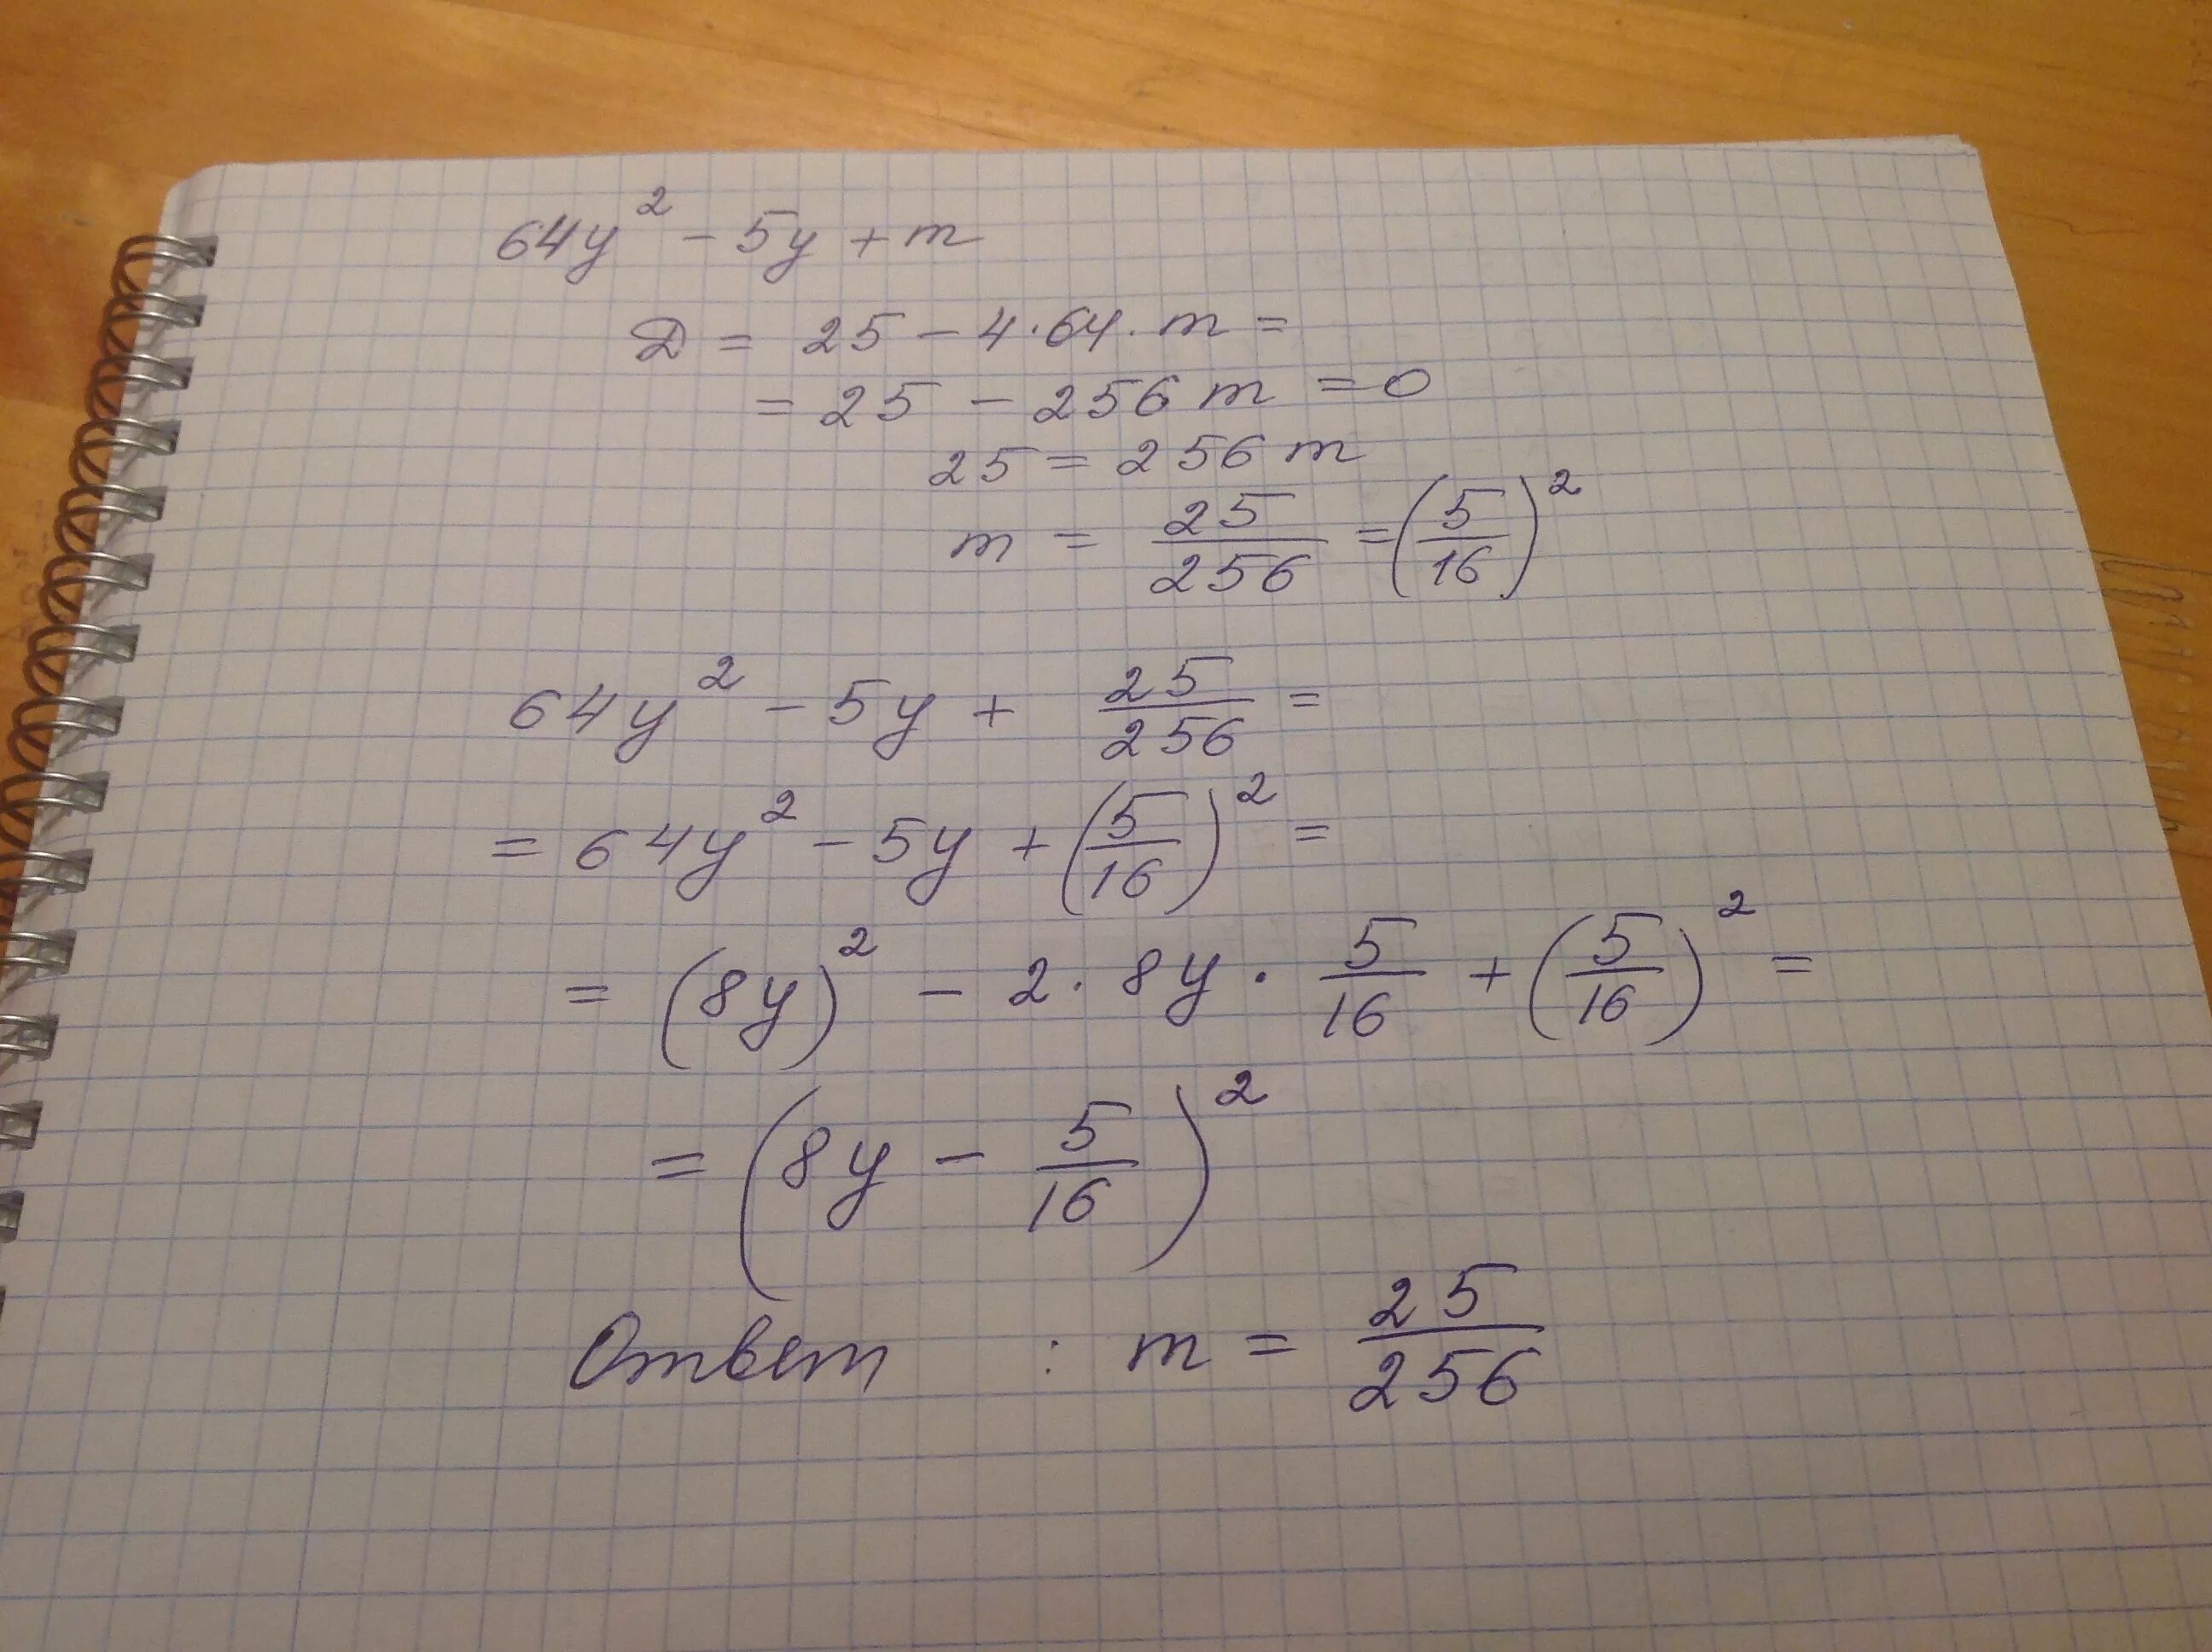 64y² - 5y + m
D = 25 - 4·64·m =
= 25 - 256m = 0
25 = 256m
m = 25/256 = (5/16)²
64y² - 5y + 25/256 =
= 64y² - 5y + (5/16)² =
= (8y)² - 2·8y·5/16 + (5/16)² =
= (8y - 5/16)²
Ответ : m = 25/256